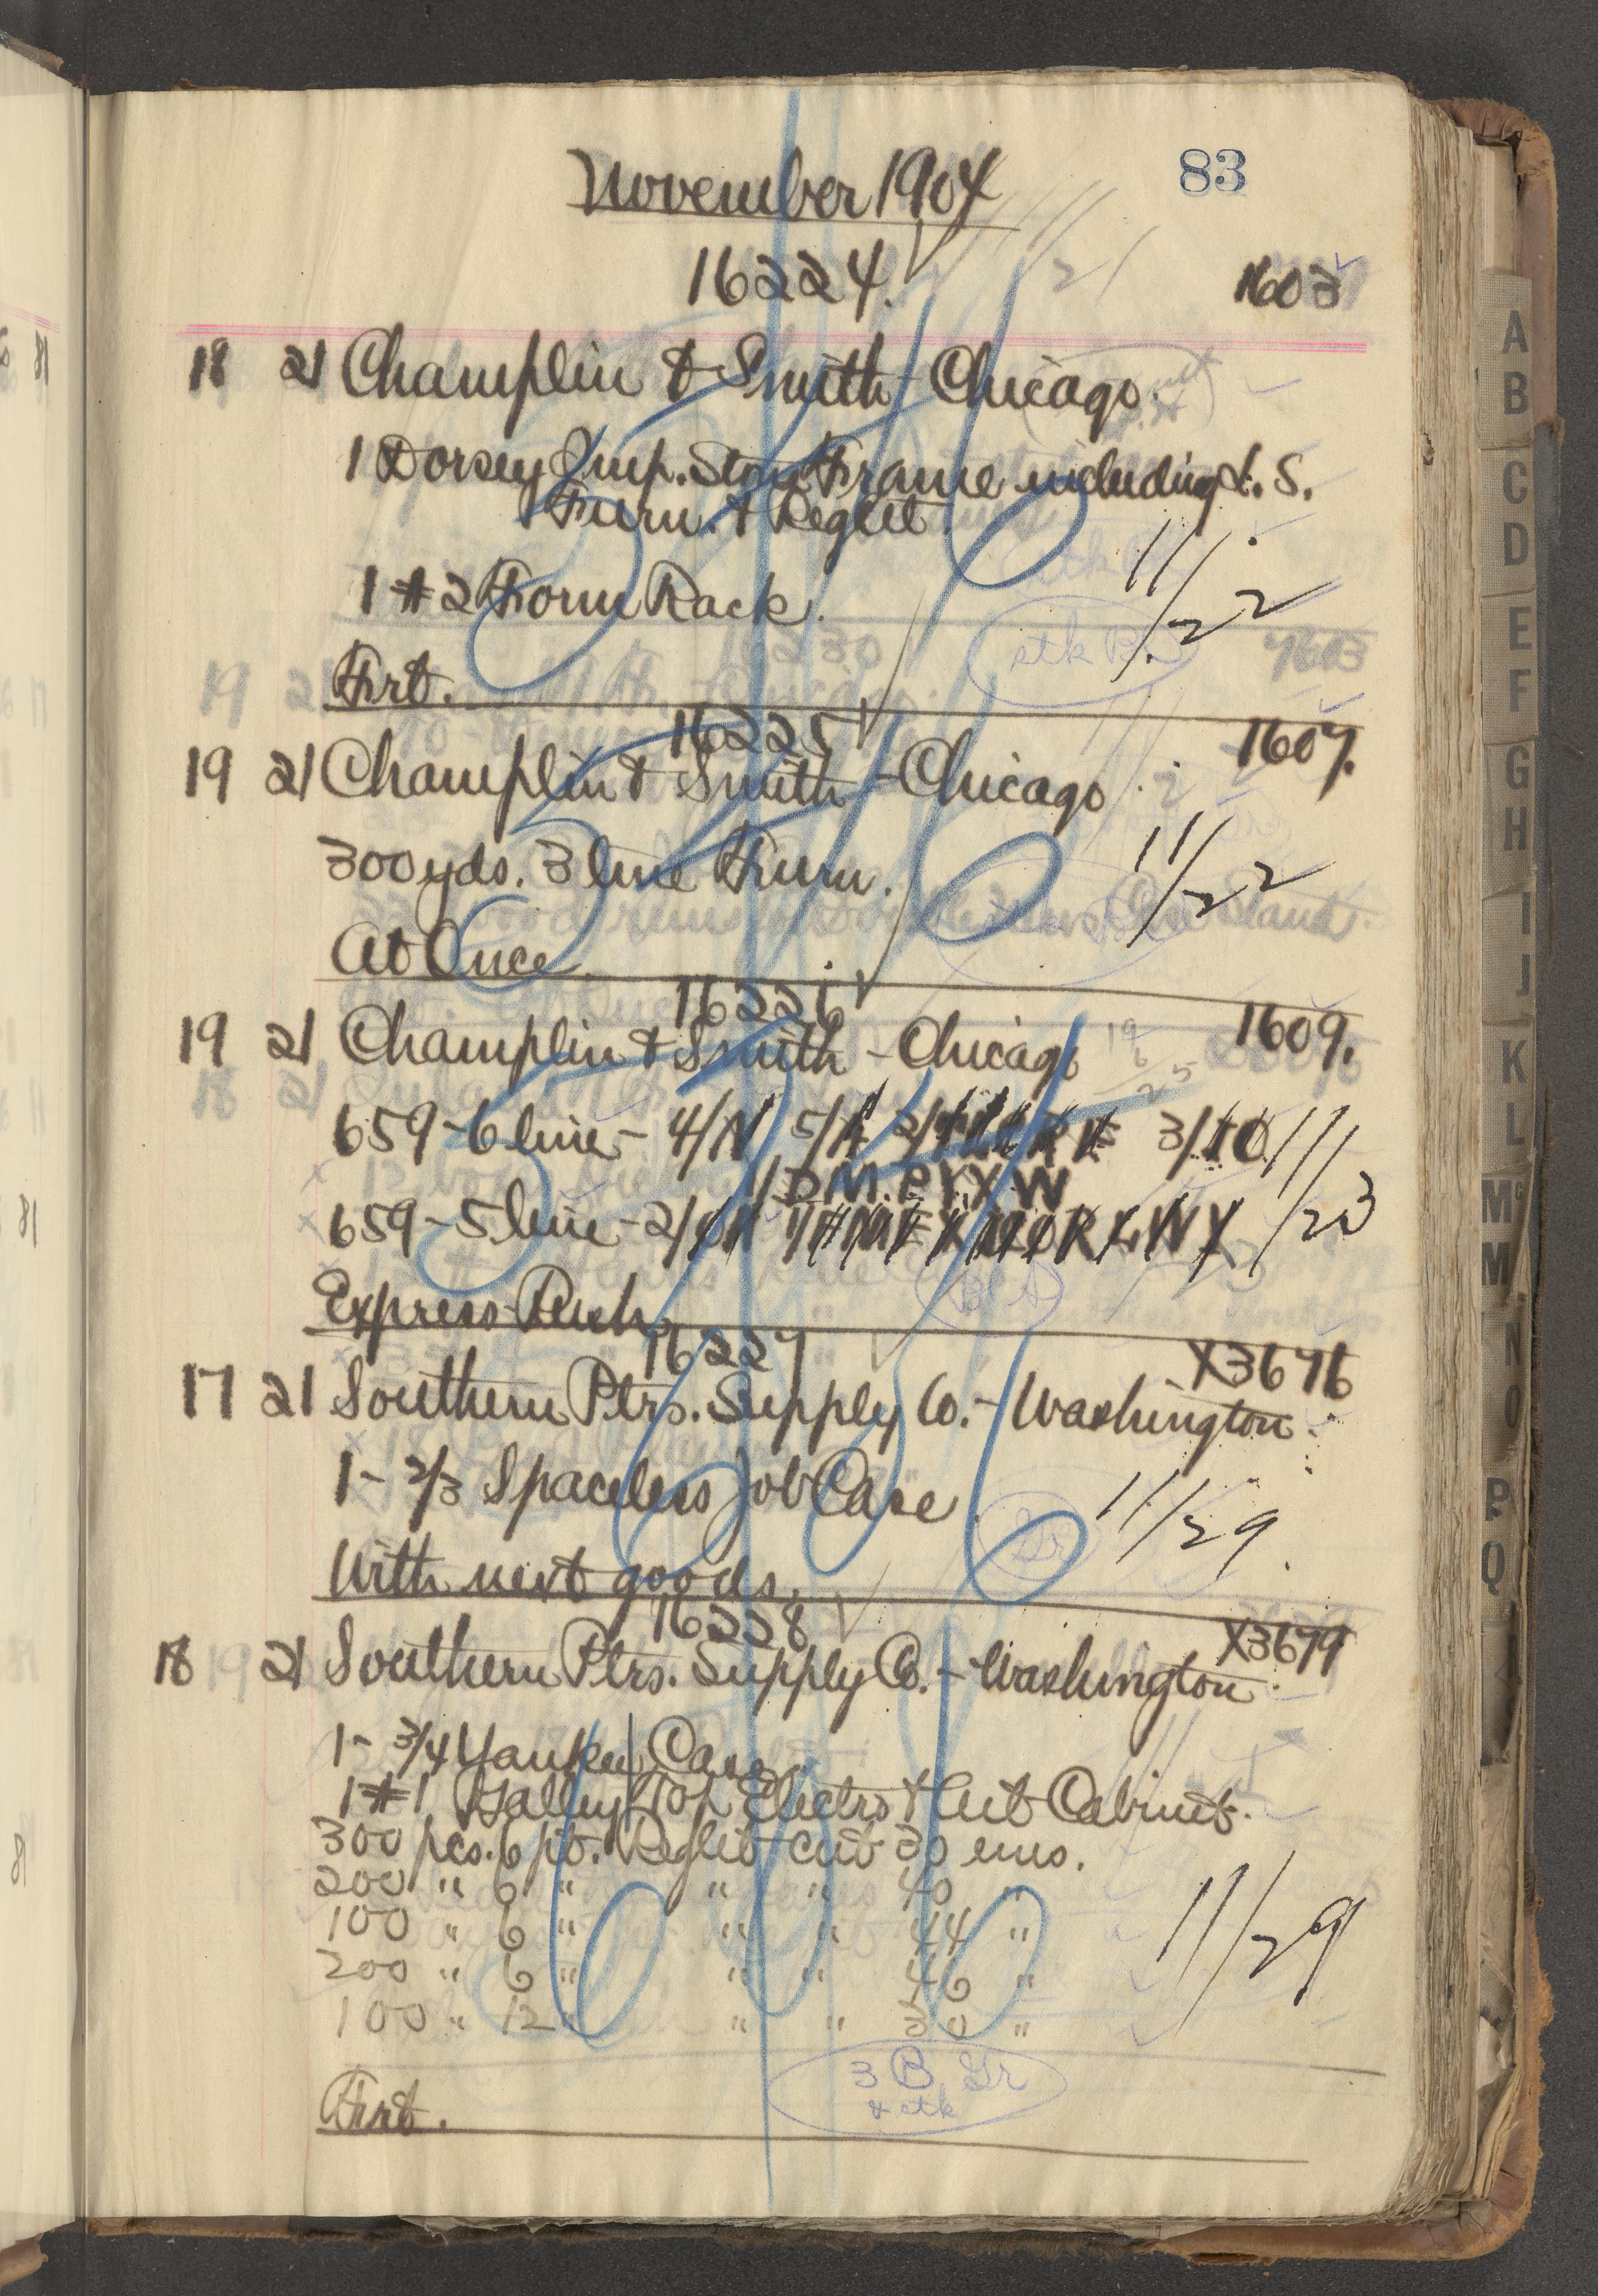 83
November 1904
16224.
1603
18 21 Champlin & Smith - Chicago.
1 Dorsey Imp. Stone Frame including L. S.
Furn. & Reglet.
1 #2 Form Rack.
11/22
stk B
Frt.
16225
1607.
19 21 Champlin & Smith - Chicago
300 yds. 3 line Furn.
11/22
At Once.
16226
1609.
19 21 Champlin & Smith - Chicago
659 - 6 line - 4/N
11/23
659 - 5 line - 2/
Express Rush
16227
X3676
17 21 Southern Ptrs. Supply Co. - Washington.
1 - 2/3 Spaceless Job Case.
Gr
11/29.
With next goods.
16228
X3679
18 21 Southern Ptrs. Supply Co. - Washington.
1 - 3/4 Yankee Case.
1 #1 Galley Top Electro & Cut Cabinet.
300 pcs. 6 pt. Reglet cut 30 ems.
200 " 6 " " " 40 "
100 " 6 " " " 44 "
200 " 6 " " " 46 "
100 " 12 " " "
11/29
3 B Gr
& stk
Frt.
A
B
C
D
E
F
G
H
I
J
K
L
Mc
M
N
O
P
Q